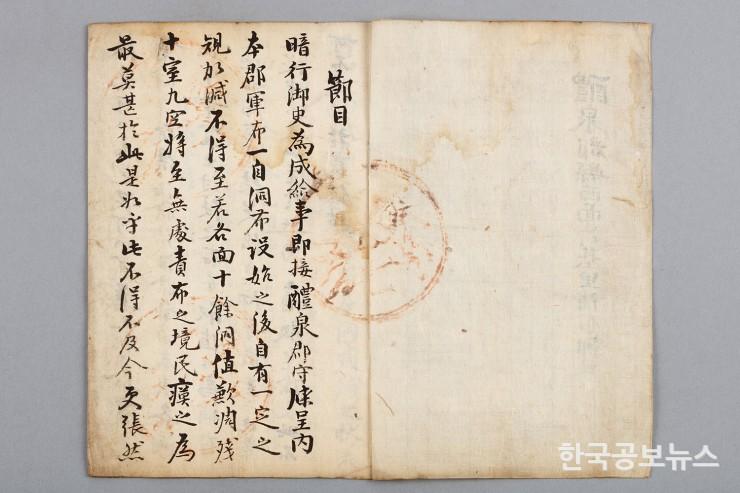 節目
暗行御史為成給事即接醴泉郡守牒呈內
本郡軍布一自洞布設始之後自有一定之
規加減不得至若各面十餘洞值歉凋殘
十室九空將至無處責布之境民瘼之為
最莫甚於此是如乎此不得不及今更張然
한국공보뉴스